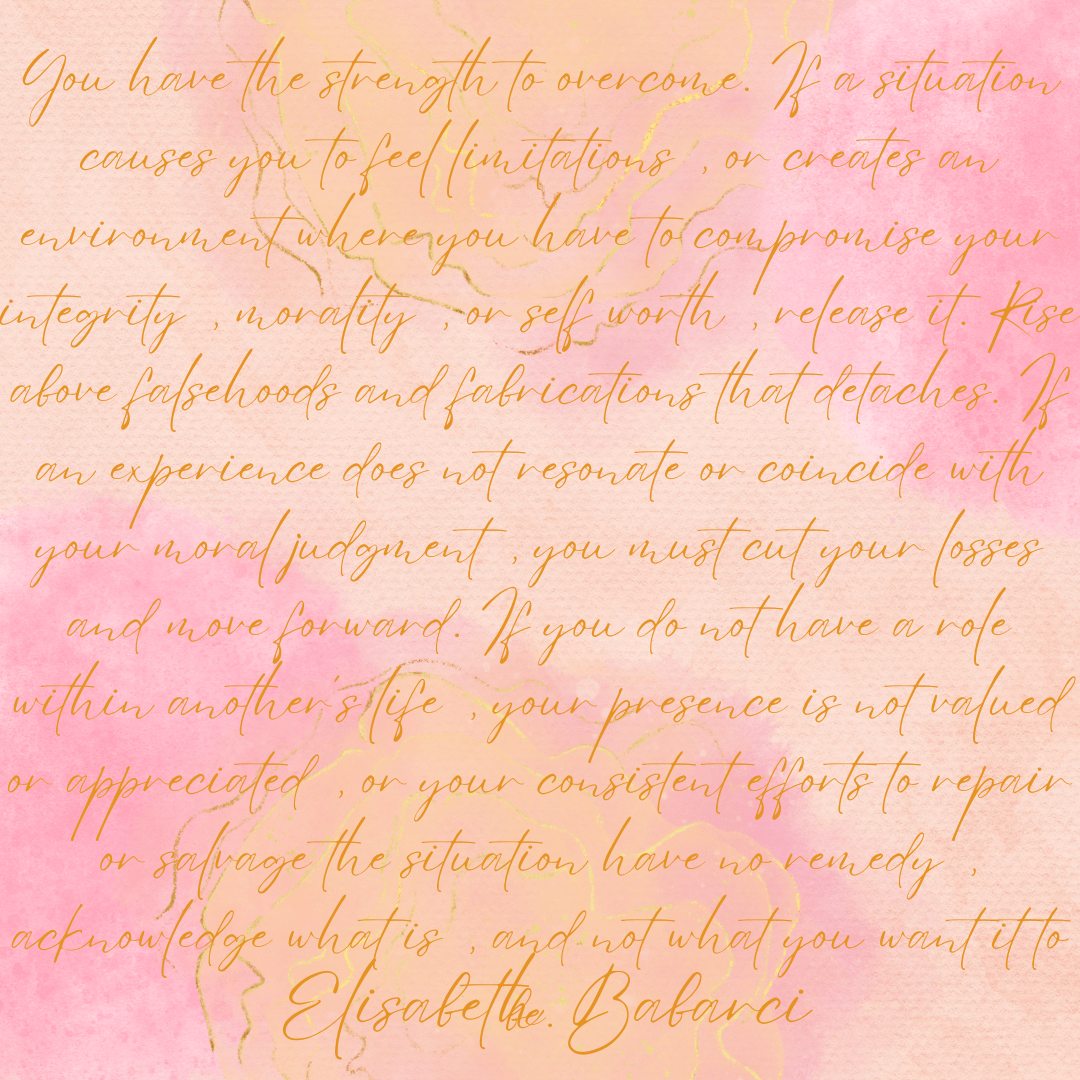 You have the strength to overcome. If a situation
causes you to feel limitations , or creates an
environment where you have to compromise your
integrity , morality , or self worth , release it. Rise
above falsehoods and fabrications that detaches. If
an experience does not resonate or coincide with
your moral judgment , you must cut your losses
and move forward. If you do not have a role
within another's life , your presence is not valued
or appreciated , or your consistent efforts to repair
or salvage the situation have no remedy ,
acknowledge what is , and not what you want it to
be.
Elisabeth Babarci